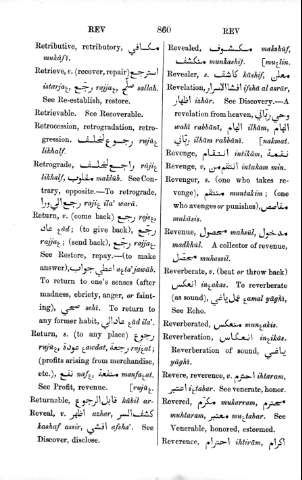 REV 860 REV
Retributive, retributory, مكافي
mukāfi.
Retrieve, v. (recover, repair) استرجع
istarjaع, رجع rajjaع, صلح sallah.
See Re-establish, restore.
Retrievable. See Recoverable.
Retrocession, retrogradation, retrogression.
رجوع لخلف rujūع
likhalf.
Retrograde, راجع لخلف rājiع
likhalf, مقلوب maklūb. See Contrary,
opposite.—To retrograde,
رجع الى ورا rajiع ila' warā.
Return, v. (come back) رجع rajaع,
عاد عād; (to give back), رجع
rajjaع; (send back), رجع rajjaع.
See Restore, repay.—(to make
answer), اعطي جواب aعta'jawāb.
To return to one's senses (after
madness, ebriety, anger, or fainting),
صحي sahi. To return to
any former habit, عاد الى عād ila'.
Return, s. (to any place) رجوع
rujūع, عودة عawdat, رجعة rajعat;
(profits arising from merchandise,
etc.), نفع nafع, منفعة manfaعat.
See Profit, revenue. [rujūع.
Returnable, قابل الرجوع kābil ar-
Reveal, v. اظهر azhar, كشف السر
kashaf assir, افشي afsha'. See
Discover, disclose.
Revealed, مكشوف makshūf,
منكشف munkashif. [muعlin.
Revealer, s. كاشف kāshif, معلن
Revelation, افشا الاسرار ifshā al asrār,
اظهار izhār. See Discovery.—A
revelation from heaven, وحي رباني
wahi rabbāni, الهام ilhām, الهام
رباني ilhām rabbāni. [nakmat.
Revenge, انتقام intikām, نقمة
Revenge, v. انتقم من intakam min.
Revenger, s. (one who takes revenge),
منتقم muntakim; (one
who avenges or punishes), مقاصص
mukāsis.
Revenue, محصول mahsūl, مدخول
madkhūl. A collector of revenue,
محصل muhassil.
Reverberate, v. (beat or throw back)
انعكس inعakas. To reverberate
(as sound), عمل ياغي عamal yāghi.
See Echo.
Reverberated, منعكس munعakis.
Reverberation, انعكاس inعikās.
Reverberation of sound, ياغي
yāghi.
Revere, reverence, v. احترم ihtaram,
اعتبر iعtabar. See venerate, honor.
Revered, مكرم mukarram, محترم
muhtaram, معتبر muعtabar. See
Venerable, honored, esteemed.
Reverence, احترام ihtirām, اكرام